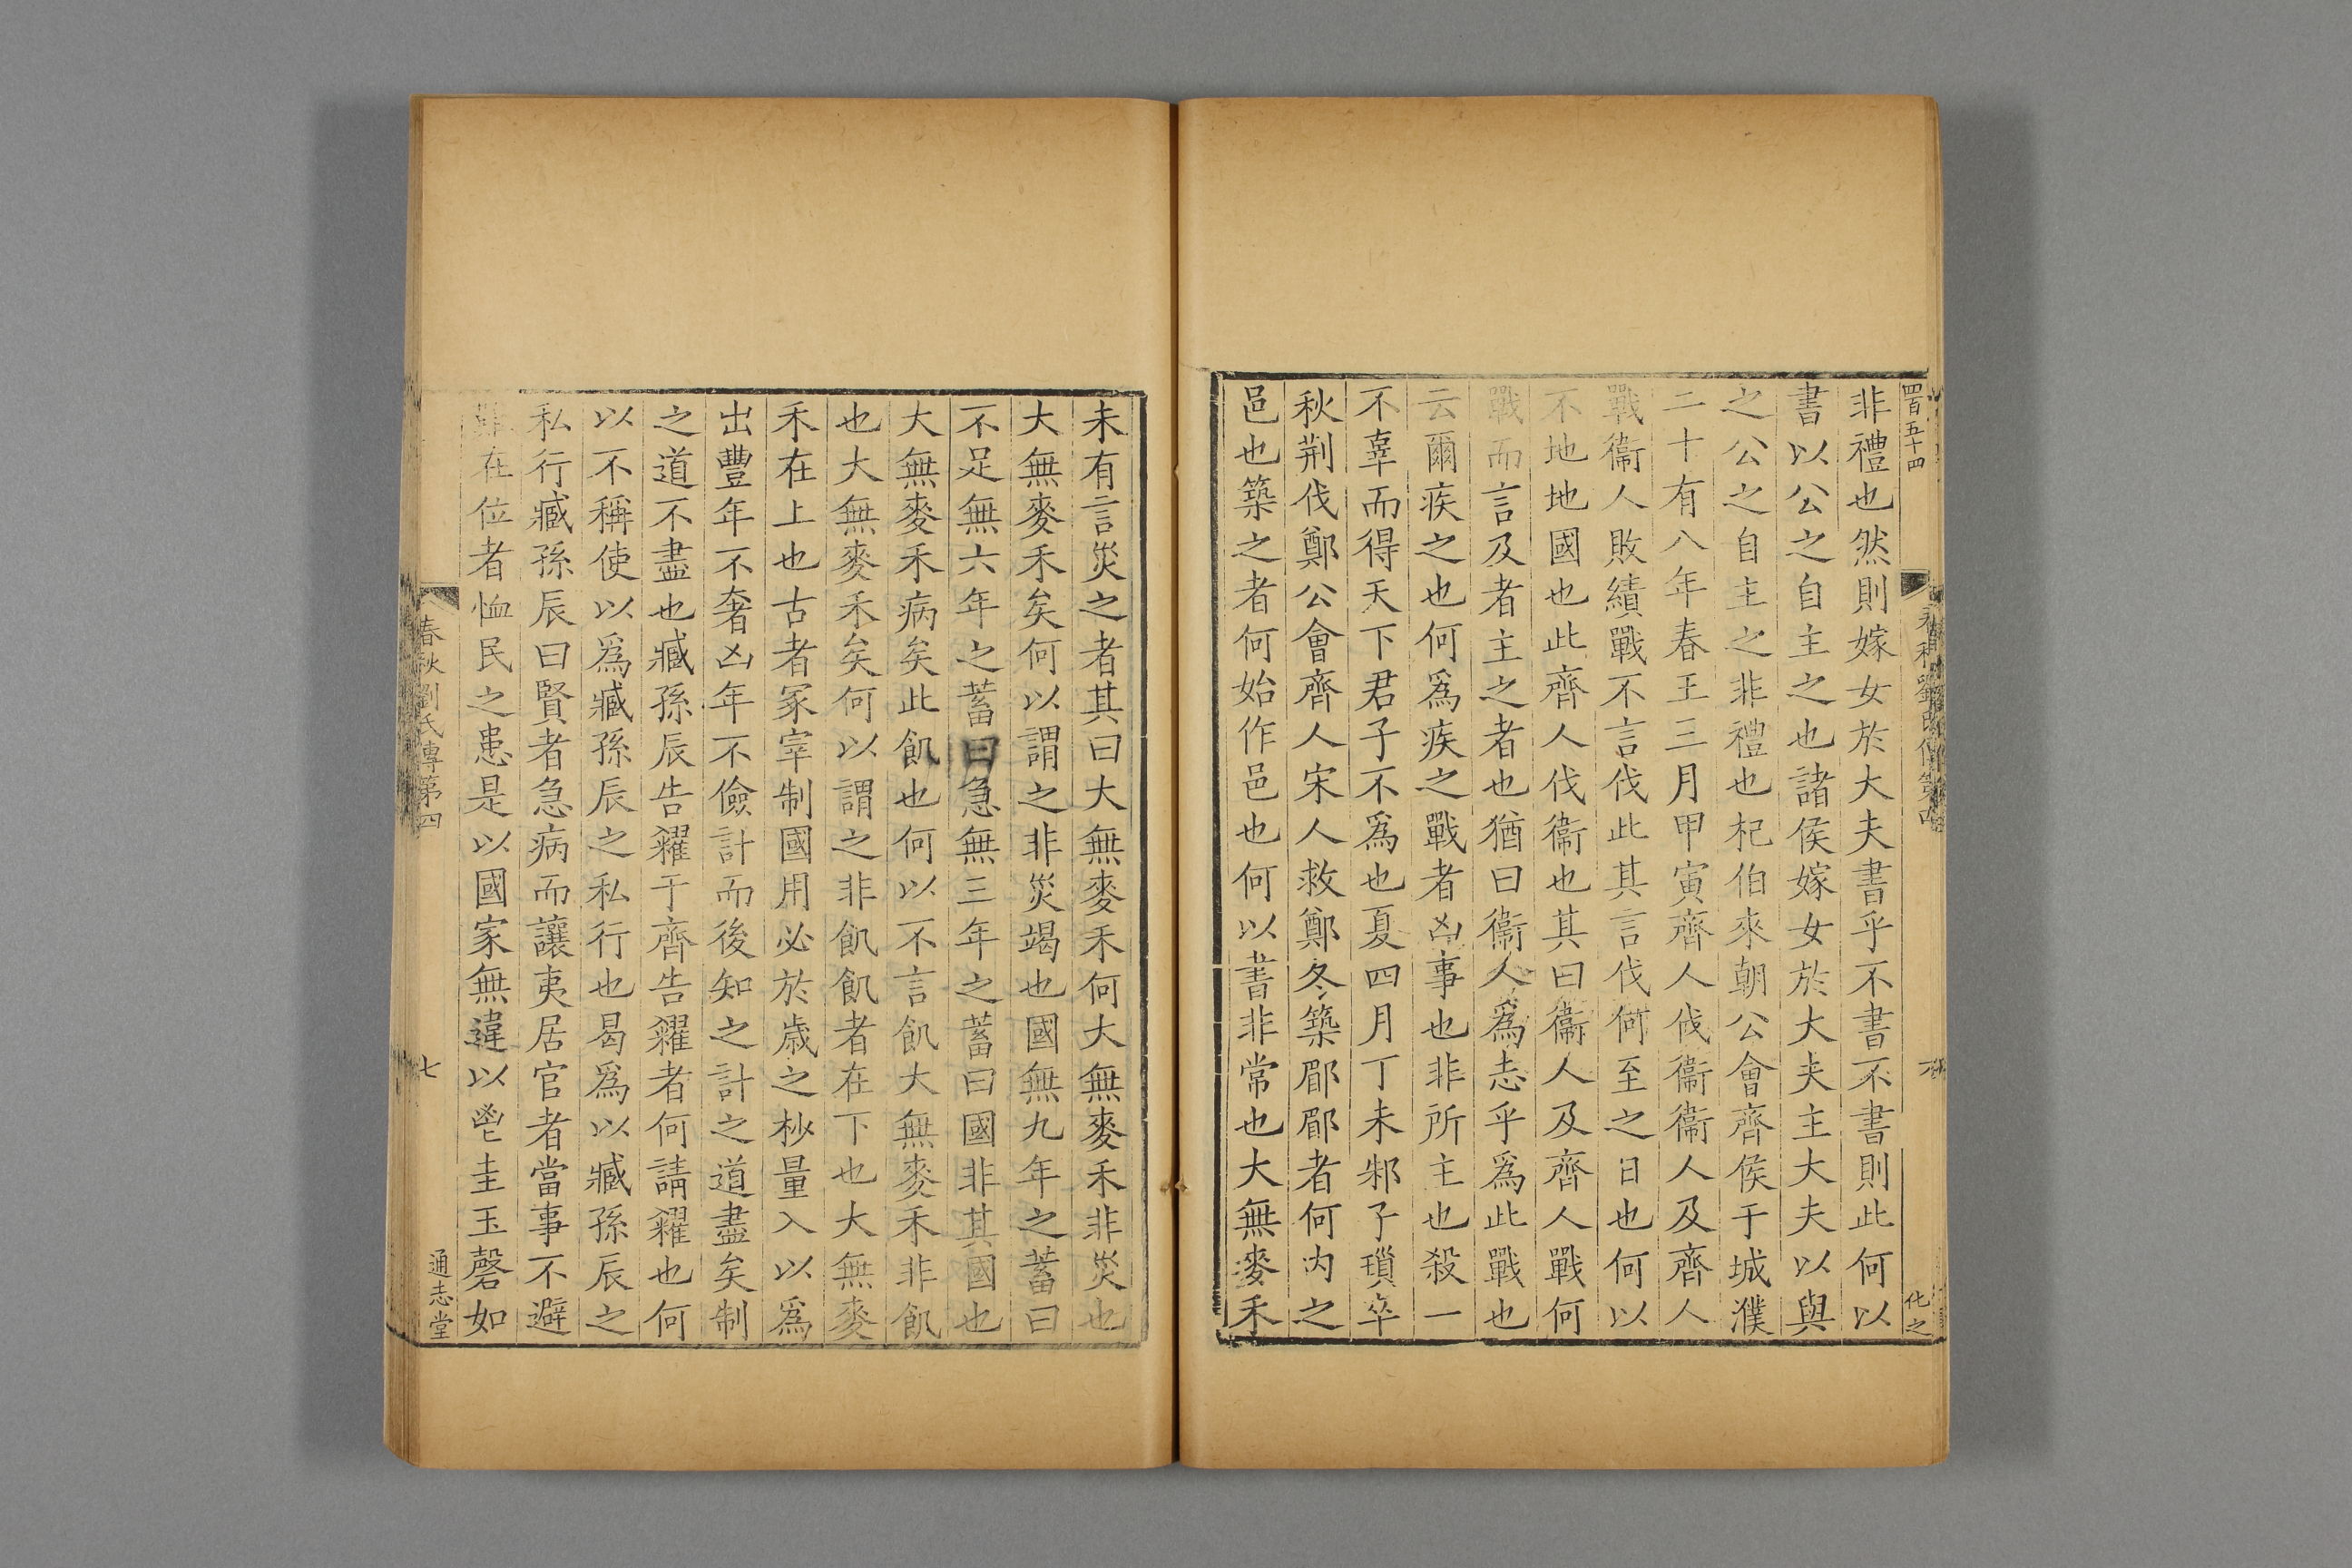 四百五十四
非禮也然則嫁女於大夫書乎不書不書則此何以
書以公之自主之也諸侯嫁女於大夫主大夫以與
之公之自主之非禮也杞伯來朝公會齊侯于城濮
二十有八年春王三月甲寅齊人伐衞衞人及齊人
戰衞人敗績戰不言伐此其言伐何至之日也何以
不地地國也此齊人伐衞也其曰衞人及齊人戰何
戰而言及者主之者也猶曰衞人爲志乎爲此戰也
云爾疾之也何爲疾之戰者凶事也非所主也殺一
不辜而得天下君子不爲也夏四月丁未邾子瑣卒
秋荆伐鄭公會齊人宋人救鄭冬築郿郿者何内之
邑也築之者何始作邑也何以書非常也大無麥禾
未有言災之者其曰大無麥禾何大無麥禾非災也
大無麥禾矣何以謂之非災竭也國無九年之蓄曰
不足無六年之蓄曰急無三年之蓄曰國非其國也
大無麥禾病矣此飢也何以不言飢大無麥禾非飢
也大無麥禾矣何以謂之非飢飢者在下也大無麥
禾在上也古者冢宰制國用必於歳之杪量入以爲
出豐年不奢凶年不儉計而後知之計之道盡矣制
之道不盡也臧孫辰告糴于齊告糴者何請糴也何
以不稱使以爲臧孫辰之私行也曷爲以臧孫辰之
私行臧孫辰曰賢者急病而讓夷居官者當事不避
難在位者恤民之患是以國家無違以鬯圭玉磬如
春秋劉氏傳第四
七
通志堂